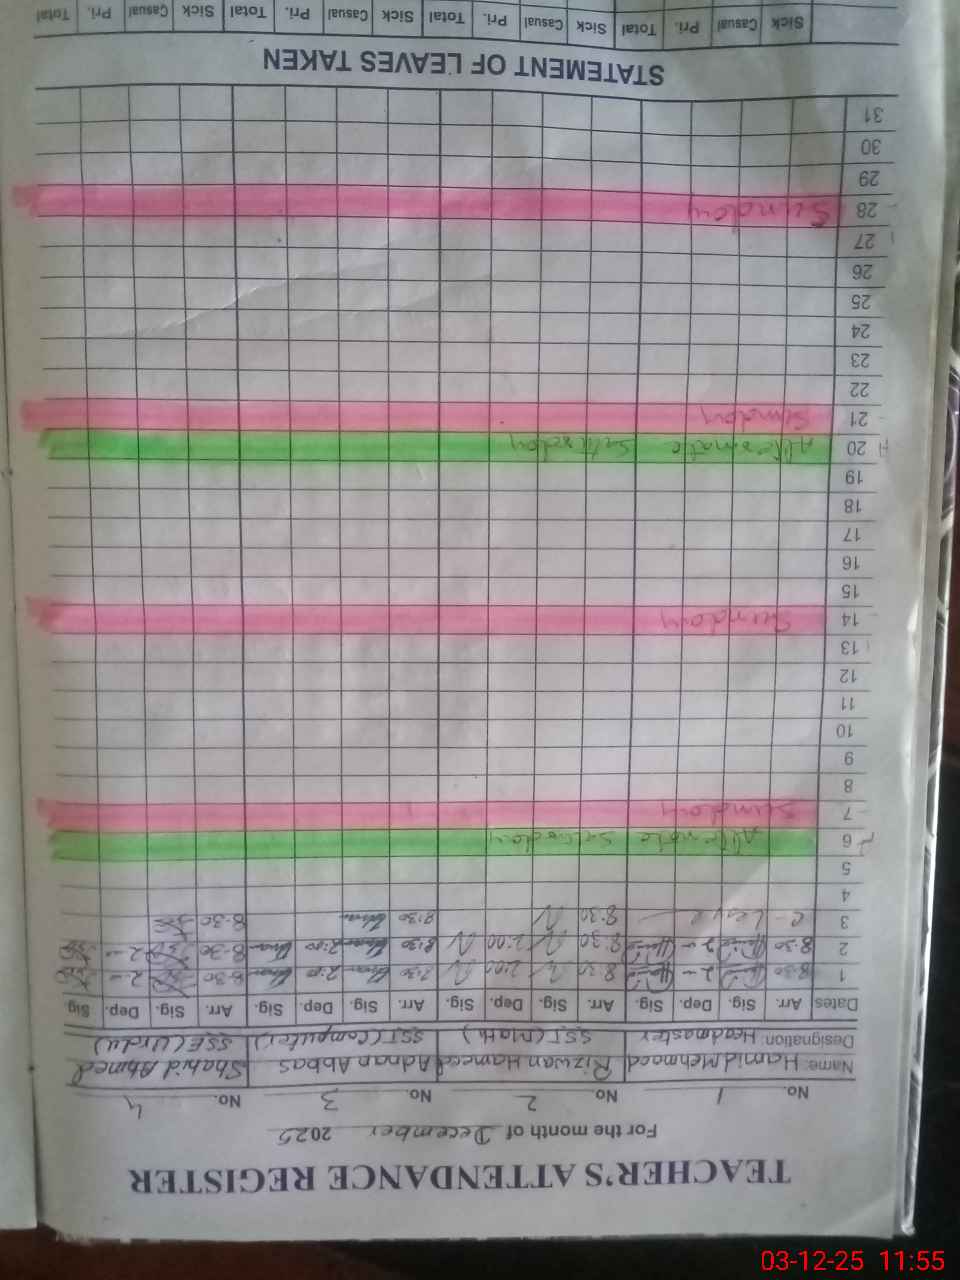 TEACHER'S ATTENDANCE REGISTER
For the month of December 2025
No. 1 No. 2 No. 3 No. 4
Name: Hamid Mehmood Rizwan Hameed Adnan Abbas Shahid Ahmed
Designation: Headmaster SST (Math) SST (Computer) SSE (Urdu)
Dates Arr. Sig. Dep. Sig Arr. Sig. Dep. Sig. Arr. Sig. Dep. Sig. Arr. Sig. Dep. Sig
1 8:30 2- 8:30 2:00 2:00 8:30 2-
2 8:30 2- 8:30 2:00 8:30 2:00 8:30 2-
3 8:30 8:30 8:30
4
5
6 Alternate Saturday
7 Sunday
8
9
10
11
12
13
14 Sunday
15
16
17
18
19
20 Alternate Saturday
21 Sunday
22
23
24
25
26
27
28 Sunday
29
30
31
STATEMENT OF LEAVES TAKEN
Sick Casual Pri. Total Sick Casual Pri. Total Sick Casual Pri. Total Sick Casual Pri. Total
03-12-25 11:55